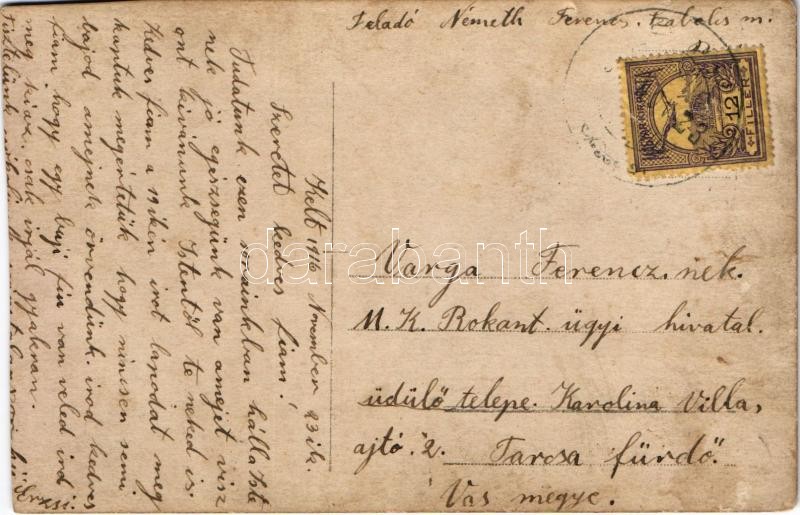 Feladó Németh Ferencz. Szabolcs m.
12
FILLÉR
Kelt 1916 November 23 ik.
Szeretet kedves fiam!
Tudatunk ezen sorainkban hálla Iste
nek jó egészségünk van amejet visz
ont kivánunk Istentöl te neked is.
Kedves fiam a 19 ikén irot lapodat meg
kaptuk megértetük hogy nincsen semi
bajod amejnek örvendünk. irod kedves
fiam, hogy egy büji fiu van veled ird
meg kiaz. csak irjál gyakran.
Tisztelünk
Erzsi.
Varga Ferencz. nek.
M. K. Rokant. ügyi hivatal.
üdülő telepe. Karolina Villa,
ajtó. 2. Tarcsa fürdő.
Vas megye.
darabanth